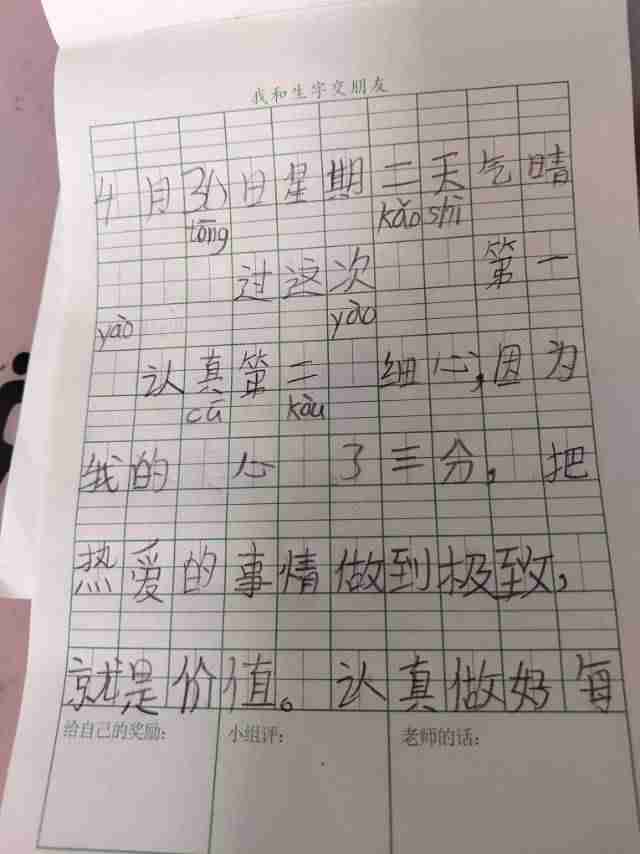 我和生字交朋友
4月30日星期二天气晴
tōng kǎo shì
过这次 第一
yào yào
认真第二 细心,因为
cū kòu
我的 心 了三分,把
热爱的事情做到极致,
就是价值。认真做好每
给自己的奖励: 小组评: 老师的话: